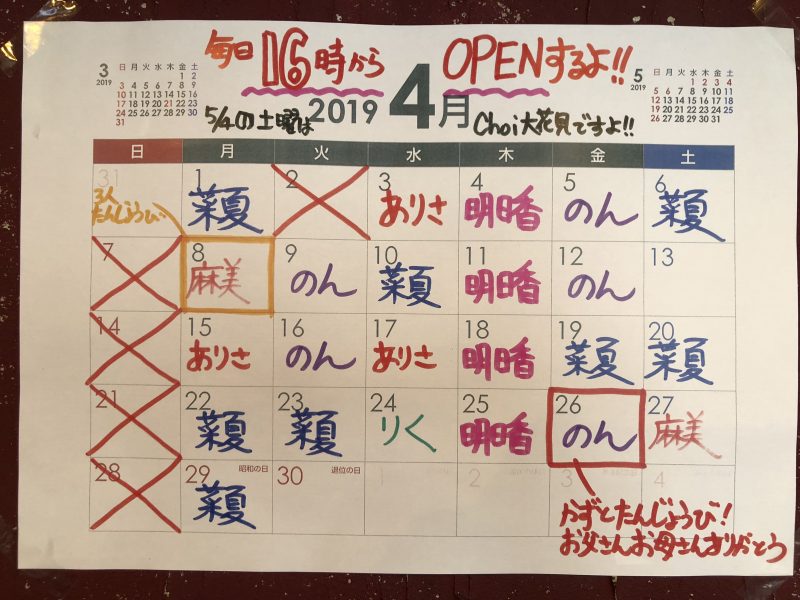 毎日16時から OPENするよ!!
3
2019
日 月 火 水 木 金 土
1 2
3 4 5 6 7 8 9
10 11 12 13 14 15 16
17 18 19 20 21 22 23
24 25 26 27 28 29 30
31
2019 4月
5
2019
日 月 火 水 木 金 土
1 2 3 4
5 6 7 8 9 10 11
12 13 14 15 16 17 18
19 20 21 22 23 24 25
26 27 28 29 30 31
5/4の土曜は Choi大花見ですよ!!
日 月 火 水 木 金 土
31 1 2 3 4 5 6
たんじょうび 菜夏 ありさ 明日香 のん 菜夏
7 8 9 10 11 12 13
麻美 のん 菜夏 明日香 のん
14 15 16 17 18 19 20
ありさ のん ありさ 明日香 菜夏 菜夏
21 22 23 24 25 26 27
菜夏 菜夏 りく 明日香 のん 麻美
28 29 昭和の日 30 退位の日 1 2 3 4
菜夏
かずとたんじょうび!
お父さんお母さんありがとう